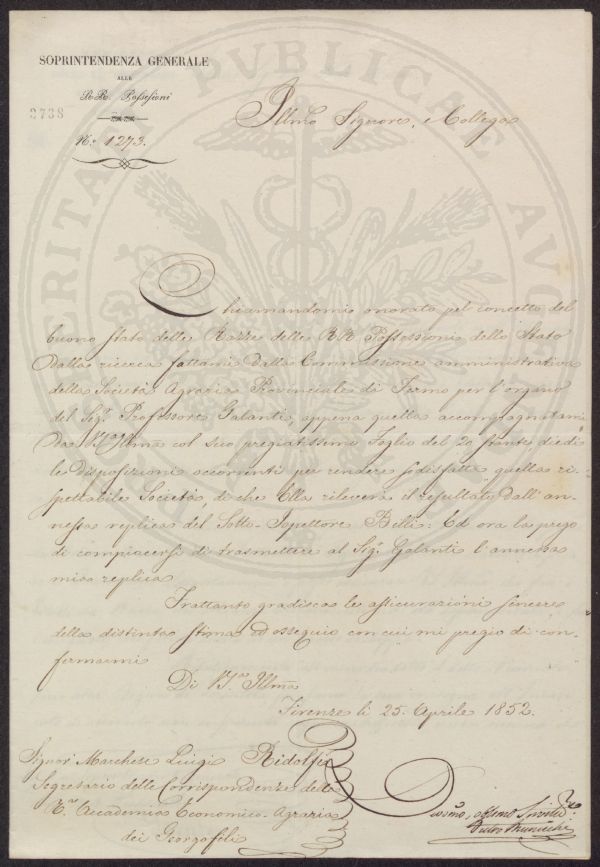 SOPRINTENDENZA GENERALE
ALLE
RR. Possessioni
2738
N.° 1273.
Illmo Signore, e Collega
PUBLICAE
Chiamandomi onorato pel concetto del
buono stato delle Razze delle RR. Possessioni dello Stato
dalla ricerca fattami dalla Commissione amministrativa
della Società Agraria Provinciale di Fermo per l'organo
del Sig.r Professore Galanti, appena quella accompagnatami
Da V.S. Illma col suo pregiatissimo Foglio del 20 stante, diedi
le disposizioni occorrenti per rendere sodisfatta quella ri-
spettabile Società, di che Ella rileverà il resultato dall'an-
nessa replica del Sotto-Ispettore Billi: Ed ora la prego
di compiacersi di trasmettere al Sig.r Galanti l'annessa
mia replica.
Frattanto gradisca le assicurazioni sincere
della distinta stima ed ossequio con cui mi pregio di con-
fermarmi
Di V.S. Illma
Firenze li 25. Aprile 1852.
Signor Marchese Luigi Ridolfi
Segretario delle Corrispondenze della
R.a Accademia Economico-Agraria
dei Georgofili
Devmo,